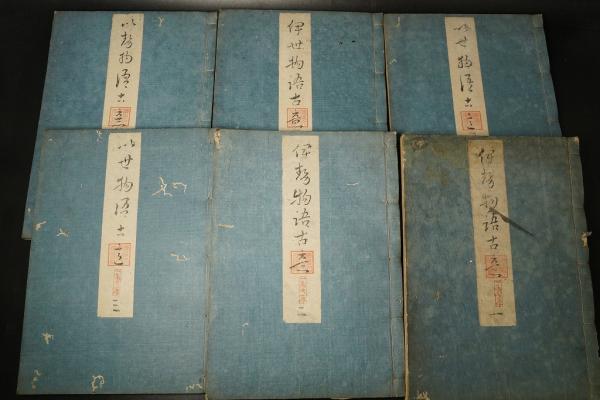 伊勢物語古意 一
伊勢物語古意 二
以世物語古意 三
以世物語古意
伊世物語古意
以勢物語古意